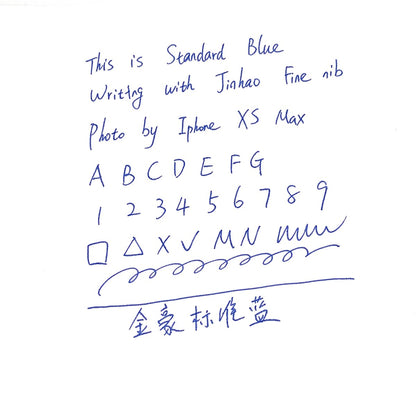 This is Standard Blue
Writtng with Jinhao Fine nib
Photo by Iphone XS Max
A B C D E F G
1 2 3 4 5 6 7 8 9
□ △ X V M N
金豪标准蓝